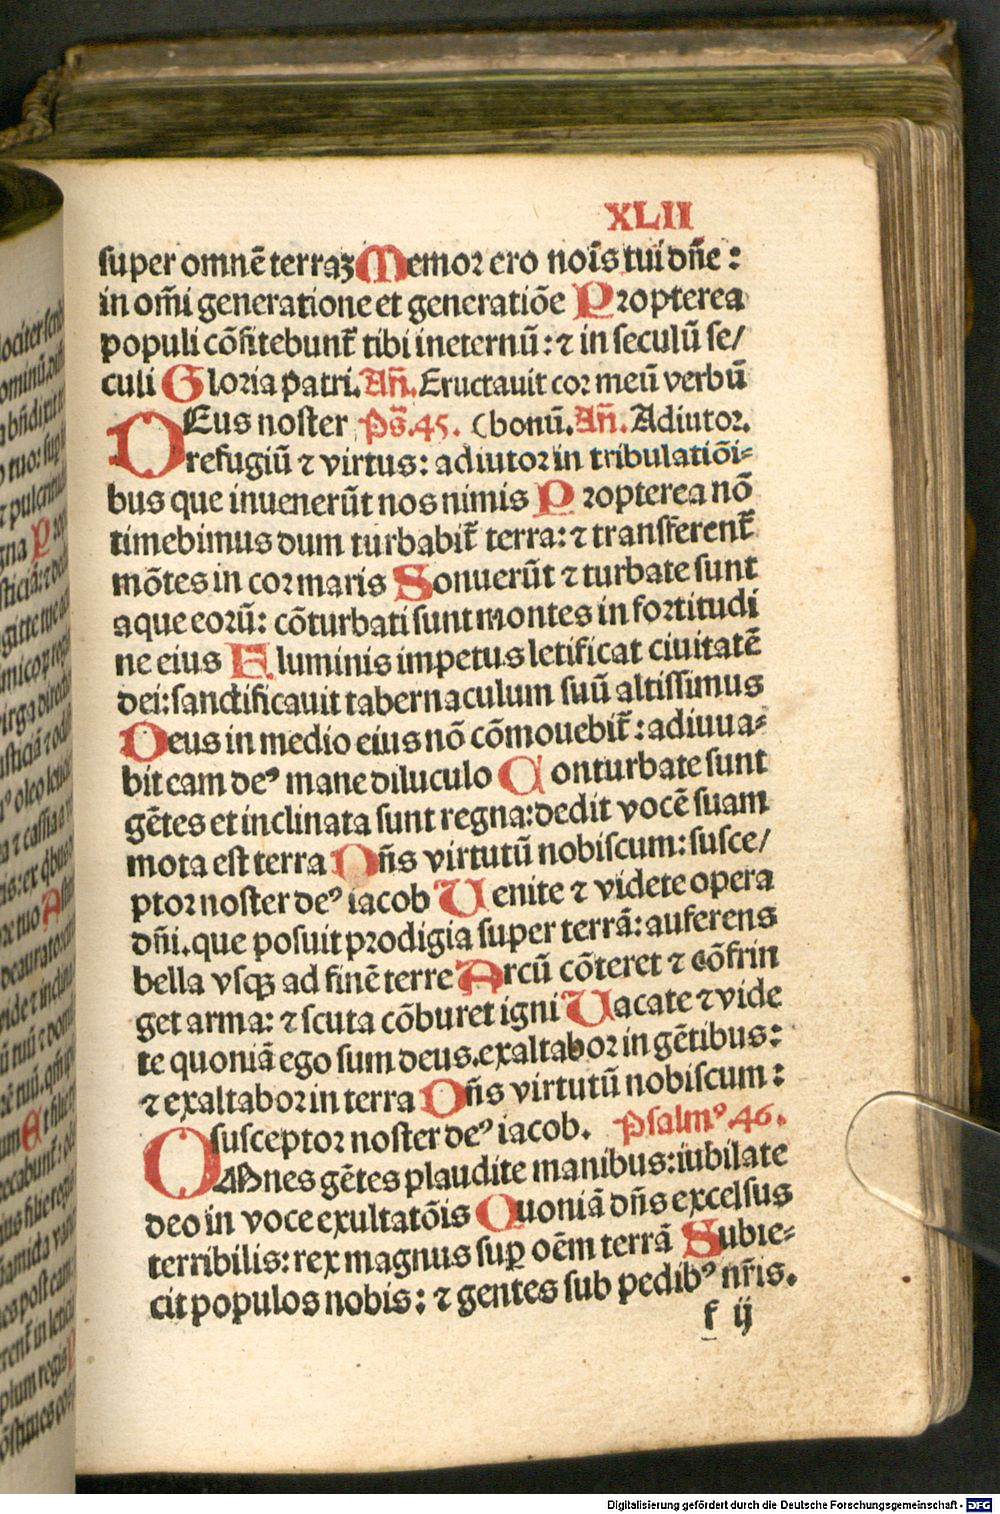 XLII
super omnē terraꝫ Memor ero noīs tui dn̄e :
in om̄i generatione et generatiōe Propterea
populi cōfitebunt̄ tibi ineternū : ⁊ in seculū se/
culi Gloria patri. An̄. Eructauit cor meū verbū
DEus noster Ps̄.45. (bonū. An̄. Adiutor.
refugiū ⁊ virtus: adiutor in tribulatiōi⸗
bus que inuenerūt nos nimis Propterea nō
timebimus dum turbabit̄ terra: ⁊ transferent̄
mōtes in cor maris Sonuerūt ⁊ turbate sunt
aque eorū: cōturbati sunt montes in fortitudi
ne eius Fluminis impetus letificat ciuitatē
dei: sanctificauit tabernaculum suū altissimus
Deus in medio eius nō cōmouebit̄ : adiuua⸗
bit eam deꝰ mane diluculo Conturbate sunt
gētes et inclinata sunt regna: dedit vocē suam
mota est terra Dn̄s virtutū nobiscum: susce/
ptor noster deꝰ iacob Uenite ⁊ videte opera
dn̄i. que posuit prodigia super terrā: auferens
bella vsqꝫ ad finē terre Arcū cōteret ⁊ cōfrin
get arma: ⁊ scuta cōburet igni Uacate ⁊ vide
te quoniā ego sum deus. exaltabor in gētibus:
⁊ exaltabor in terra Dn̄s virtutū nobiscum :
susceptor noster deꝰ iacob. Psalmꝰ 46.
OMnes gētes plaudite manibus: iubilate
deo in voce exultatōis Quoniā dn̄s excelsus
terribilis: rex magnus suꝑ oēm terrā Subie⸗
cit populos nobis: ⁊ gentes sub pedibꝰ nr̄is.
f ij
Digitalisierung gefördert durch die Deutsche Forschungsgemeinschaft - DFG